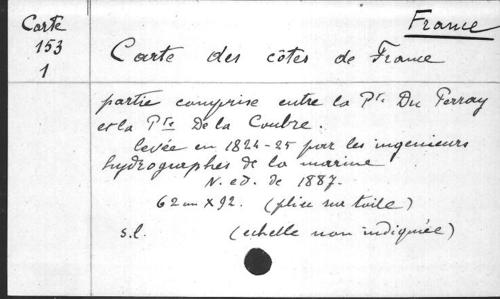 Carte
153
1
France
Carte des côtes de France
partie comprise entre la Pte Du Perray
et la Pte De la Coubre.
levée en 1824-25 par les ingenieurs
hydrographes de la marine
N. ed. de 1887.
62 cm X 92. (plise sur toile)
s.l. (echelle non indiquée)